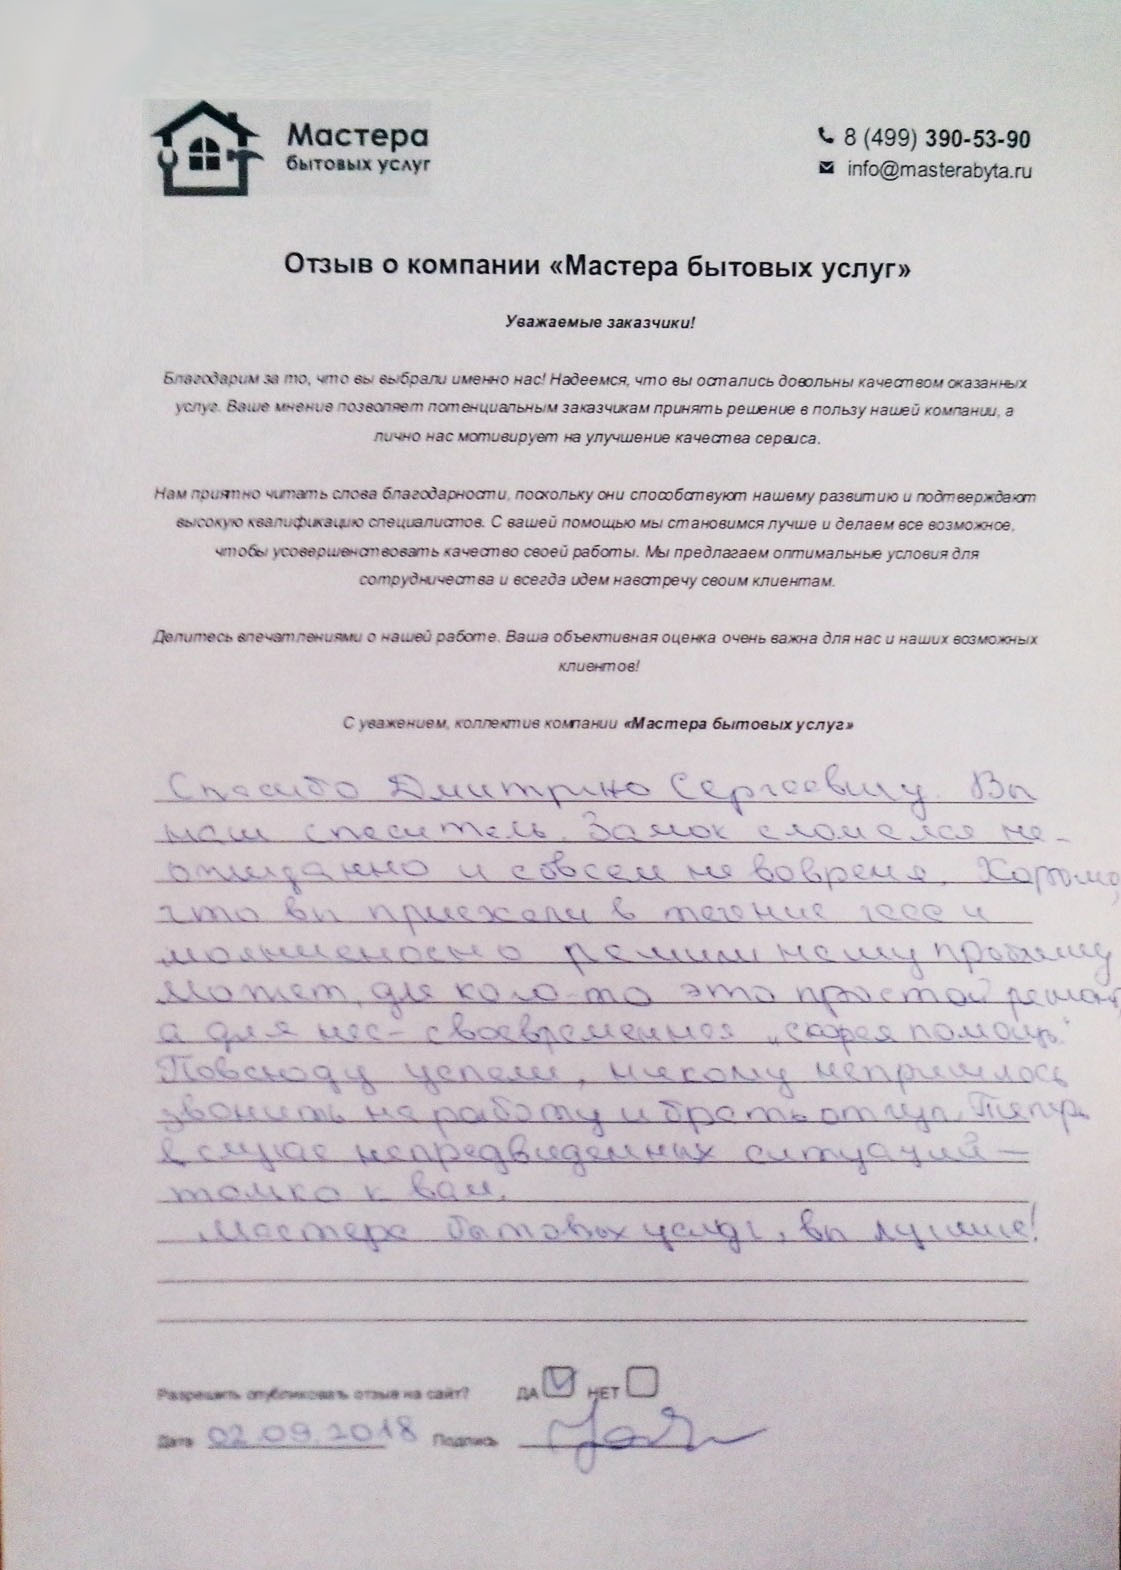 Мастера
бытовых услуг
8 (499) 390-53-90
info@masterabyta.ru
Отзыв о компании «Мастера бытовых услуг»
Уважаемые заказчики!
Благодарим за то, что вы выбрали именно нас! Надеемся, что вы остались довольны качеством оказанных
услуг. Ваше мнение позволяет потенциальным заказчикам принять решение в пользу нашей компании, а
лично нас мотивирует на улучшение качества сервиса.
Нам приятно читать слова благодарности, поскольку они способствуют нашему развитию и подтверждают
высокую квалификацию специалистов. С вашей помощью мы становимся лучше и делаем все возможное,
чтобы усовершенствовать качество своей работы. Мы предлагаем оптимальные условия для
сотрудничества и всегда идем навстречу своим клиентам.
Делитесь впечатлениями о нашей работе. Ваша объективная оценка очень важна для нас и наших возможных
клиентов!
С уважением, коллектив компании «Мастера бытовых услуг»
Спасибо Дмитрию Сергеевичу. Вы
наш спаситель. Замок сломался не-
ожиданно и совсем не вовремя. Хорошо,
что вы приехали в течение часа и
молниеносно решили нашу проблему
Может, для кого-то это простой ремонт,
а для нас - своевременная „скорая помощь“.
Повсюду успели, никому не пришлось
звонить на работу и брать отгул. Теперь
в случае непредвиденных ситуаций –
только к вам.
Мастера бытовых услуг, вы лучшие!
Разрешить опубликовать отзыв на сайт? ДА НЕТ
Дата 02.09.2018 Подпись